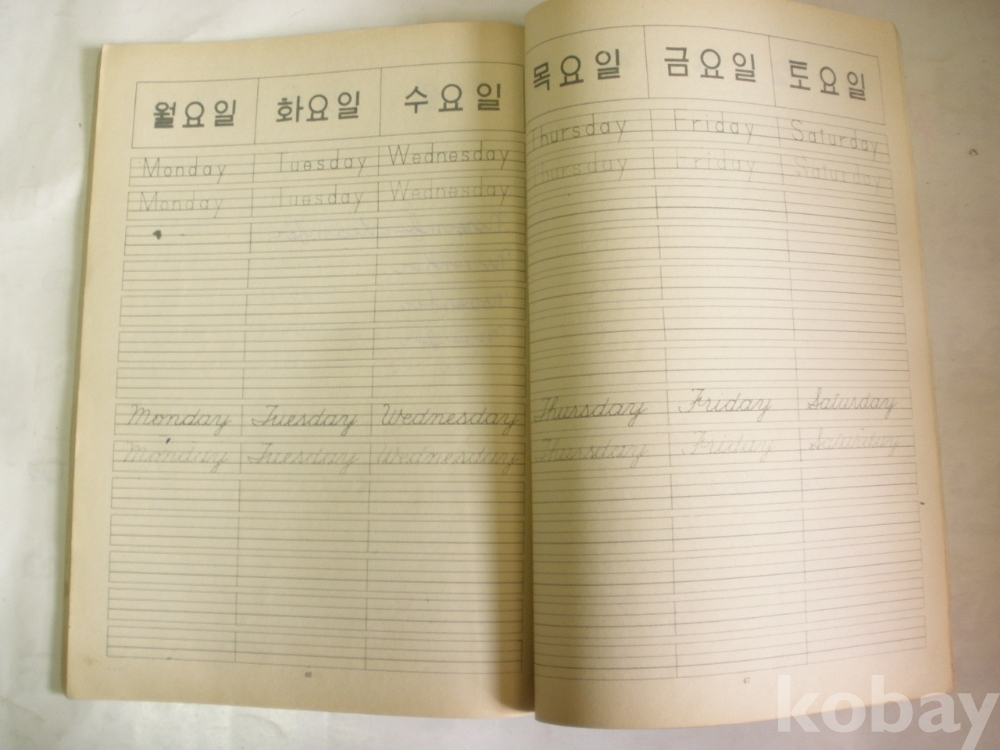 월요일 화요일 수요일 목요일 금요일 토요일
Monday Tuesday Wednesday Thursday Friday Saturday
Monday Tuesday Wednesday Thursday Friday Saturday
Monday Tuesday Wednesday Thursday Friday Saturday
Monday Tuesday Wednesday Thursday Friday Saturday
46 47
kobay